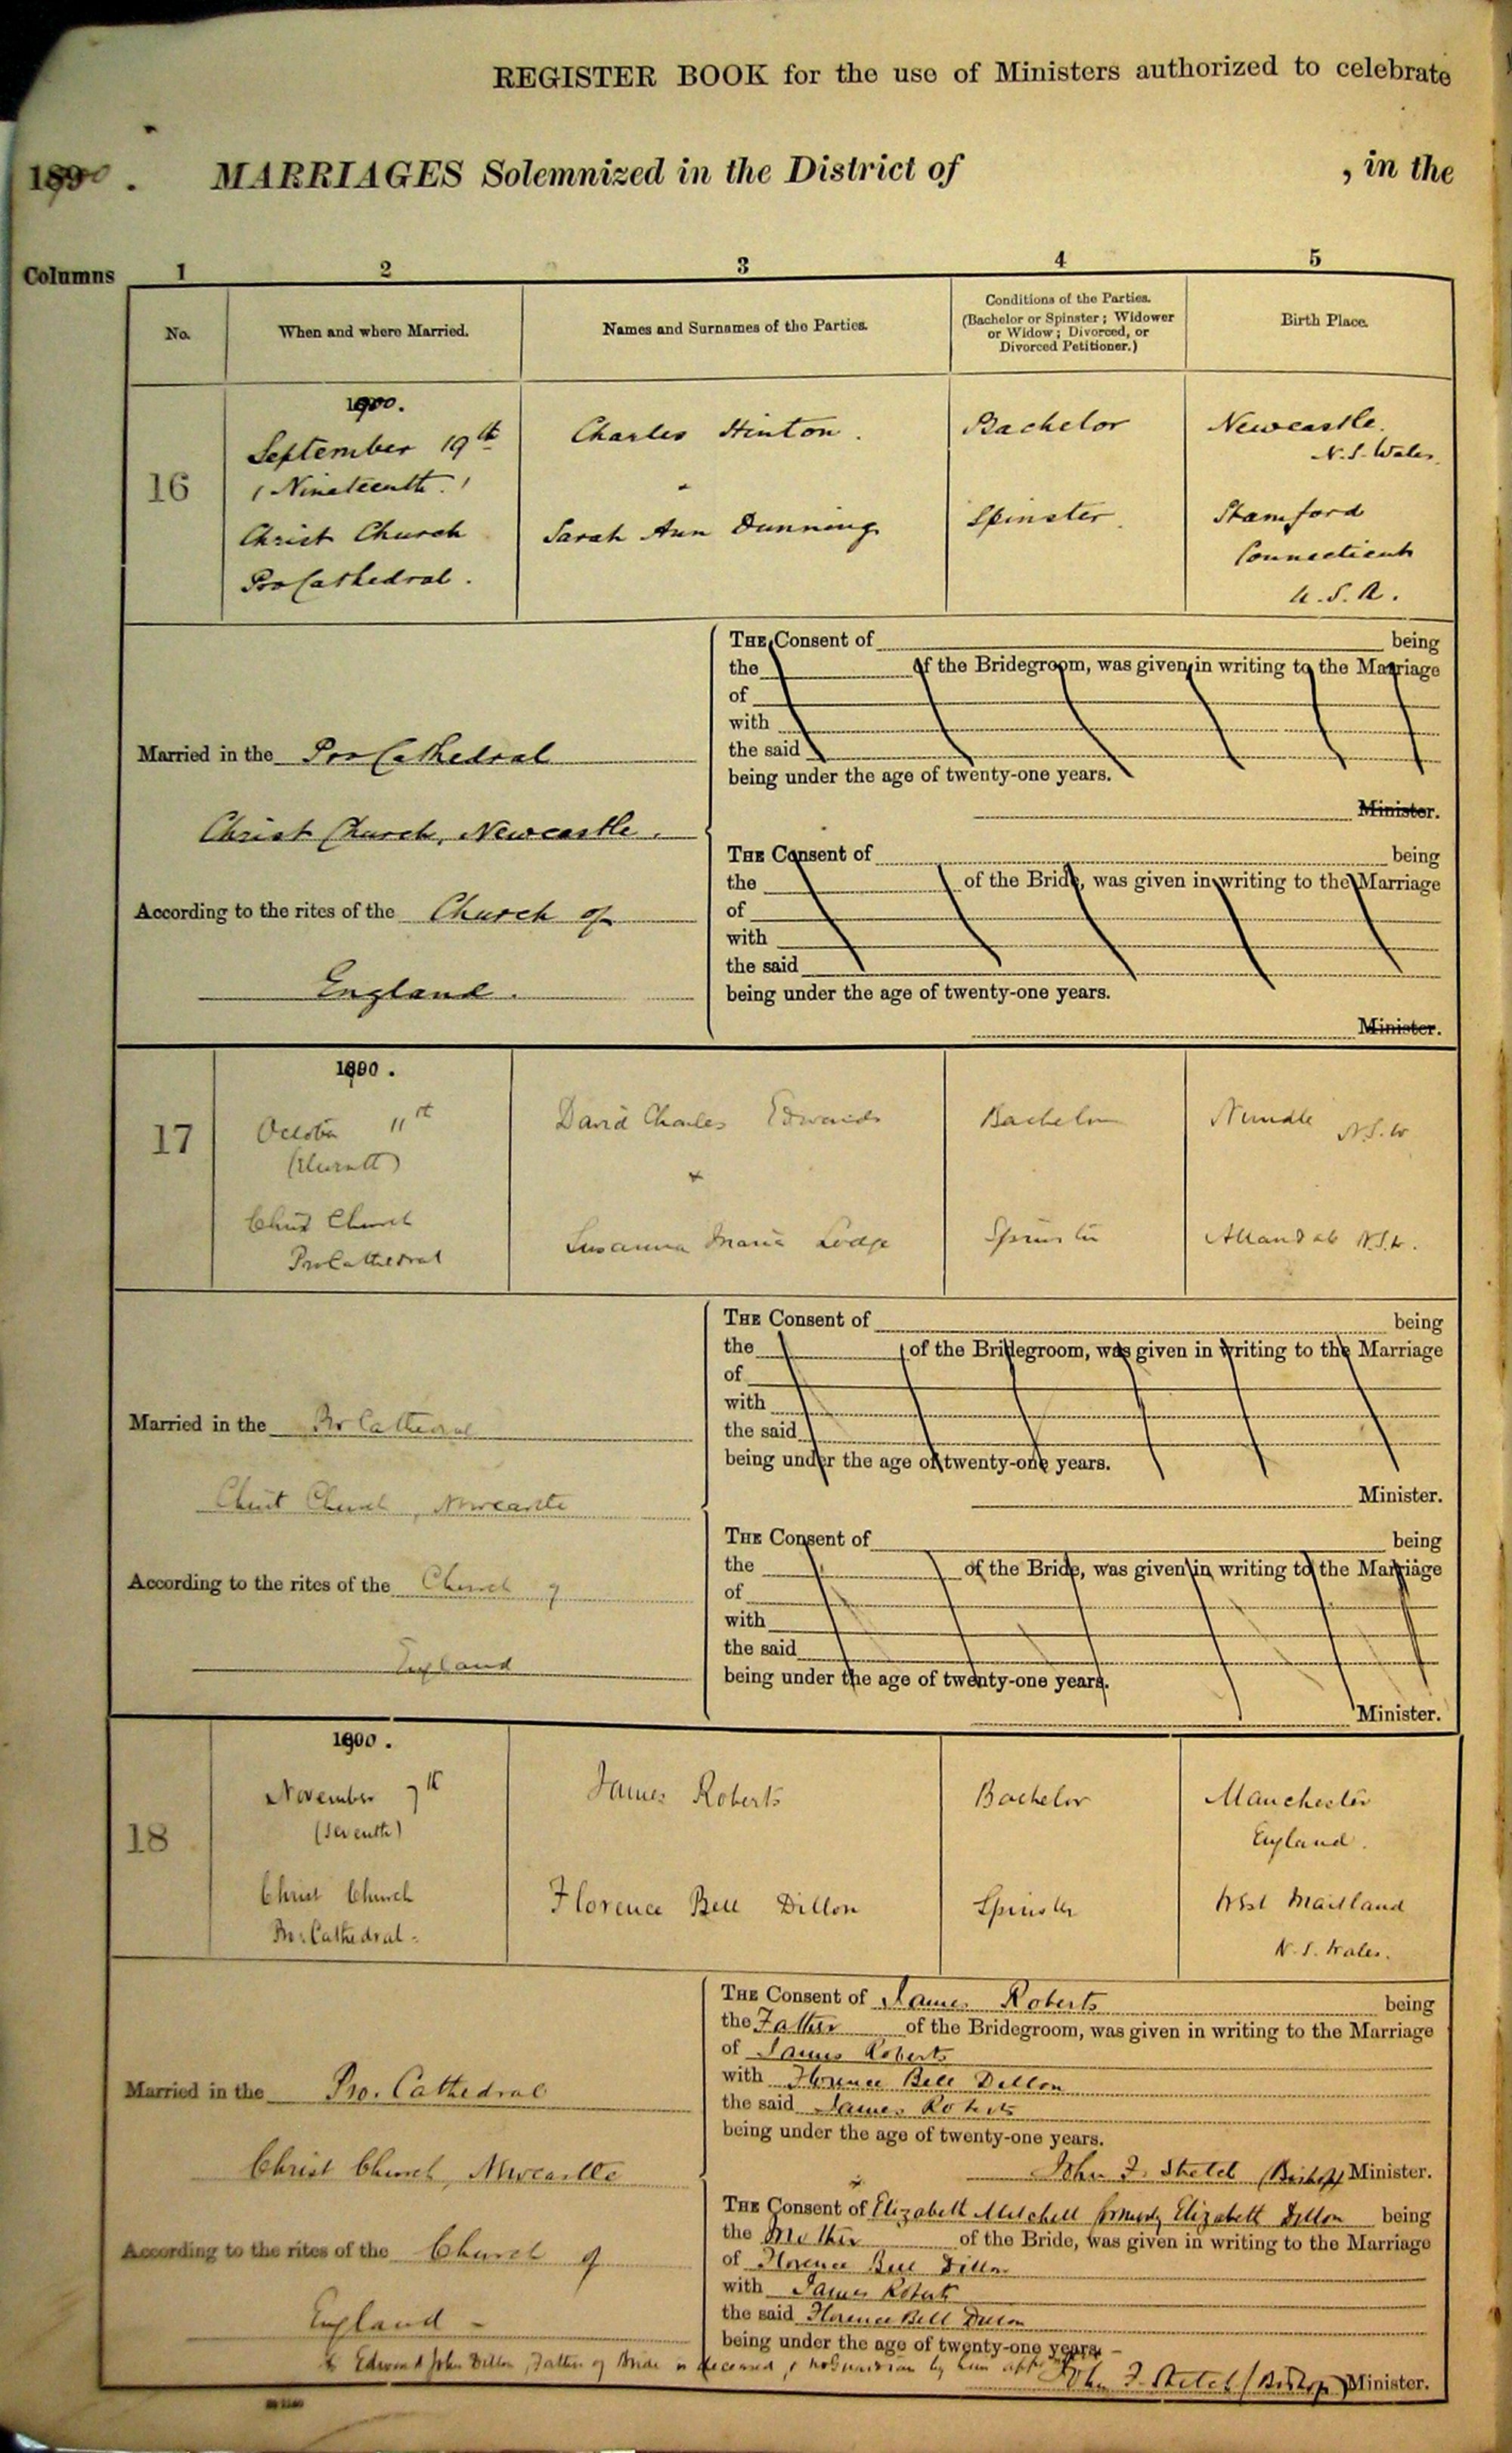 REGISTER BOOK for the use of Ministers authorized to celebrate
1890. MARRIAGES Solemnized in the District of , in the
Columns 1 2 3 4 5
No. When and where Married. Names and Surnames of the Parties. Conditions of the Parties. (Bachelor or Spinster; Widower or Widow; Divorced, or Divorced Petitioner.) Birth Place.
1900.
September 19th Charles Hinton. Bachelor Newcastle.
N.S. Wales.
16 (Nineteenth.)
Christ Church Sarah Ann Dunning Spinster. Stamford
ProCathedral. Connecticut
U.S.A.
THE Consent of being
the of the Bridegroom, was given in writing to the Marriage
of
with
Married in the ProCathedral the said
being under the age of twenty-one years.
Minister.
Christ Church, Newcastle.
THE Consent of being
the of the Bride, was given in writing to the Marriage
According to the rites of the Church of of
with
the said
England. being under the age of twenty-one years.
Minister.
1900.
17 October 11th David Charles Edwards Bachelor Nundle N.S.W
(Eleventh) +
Christ Church Susanna Maria Lodge Spinster Allandale N.S.W.
ProCathedral
THE Consent of being
the of the Bridegroom, was given in writing to the Marriage
of
with
Married in the Pro Cathedral the said
being under the age of twenty-one years.
Christ Church, Newcastle Minister.
THE Consent of being
the of the Bride, was given in writing to the Marriage
According to the rites of the Church of of
with
the said
England being under the age of twenty-one years.
Minister.
1900.
November 7th James Roberts Bachelor Manchester
18 (Seventh) England.
Christ Church Florence Bell Dillon Spinster West Maitland
Pro. Cathedral- N.S. Wales.
THE Consent of James Roberts being
the Father of the Bridegroom, was given in writing to the Marriage
of James Roberts
with Florence Bell Dillon
Married in the Pro. Cathedral the said James Roberts
being under the age of twenty-one years.
Christ Church, Newcastle John F. Stretch (Bishop) Minister.
THE Consent of Elizabeth Mitchell formerly Elizabeth Dillon being
the Mother of the Bride, was given in writing to the Marriage
According to the rites of the Church of of Florence Bell Dillon
with James Roberts
England - the said Florence Bell Dillon
being under the age of twenty-one years. -
Edward John Dillon, Father of Bride is deceased, & no Guardian by him
John F. Stretch (Bishop) Minister.